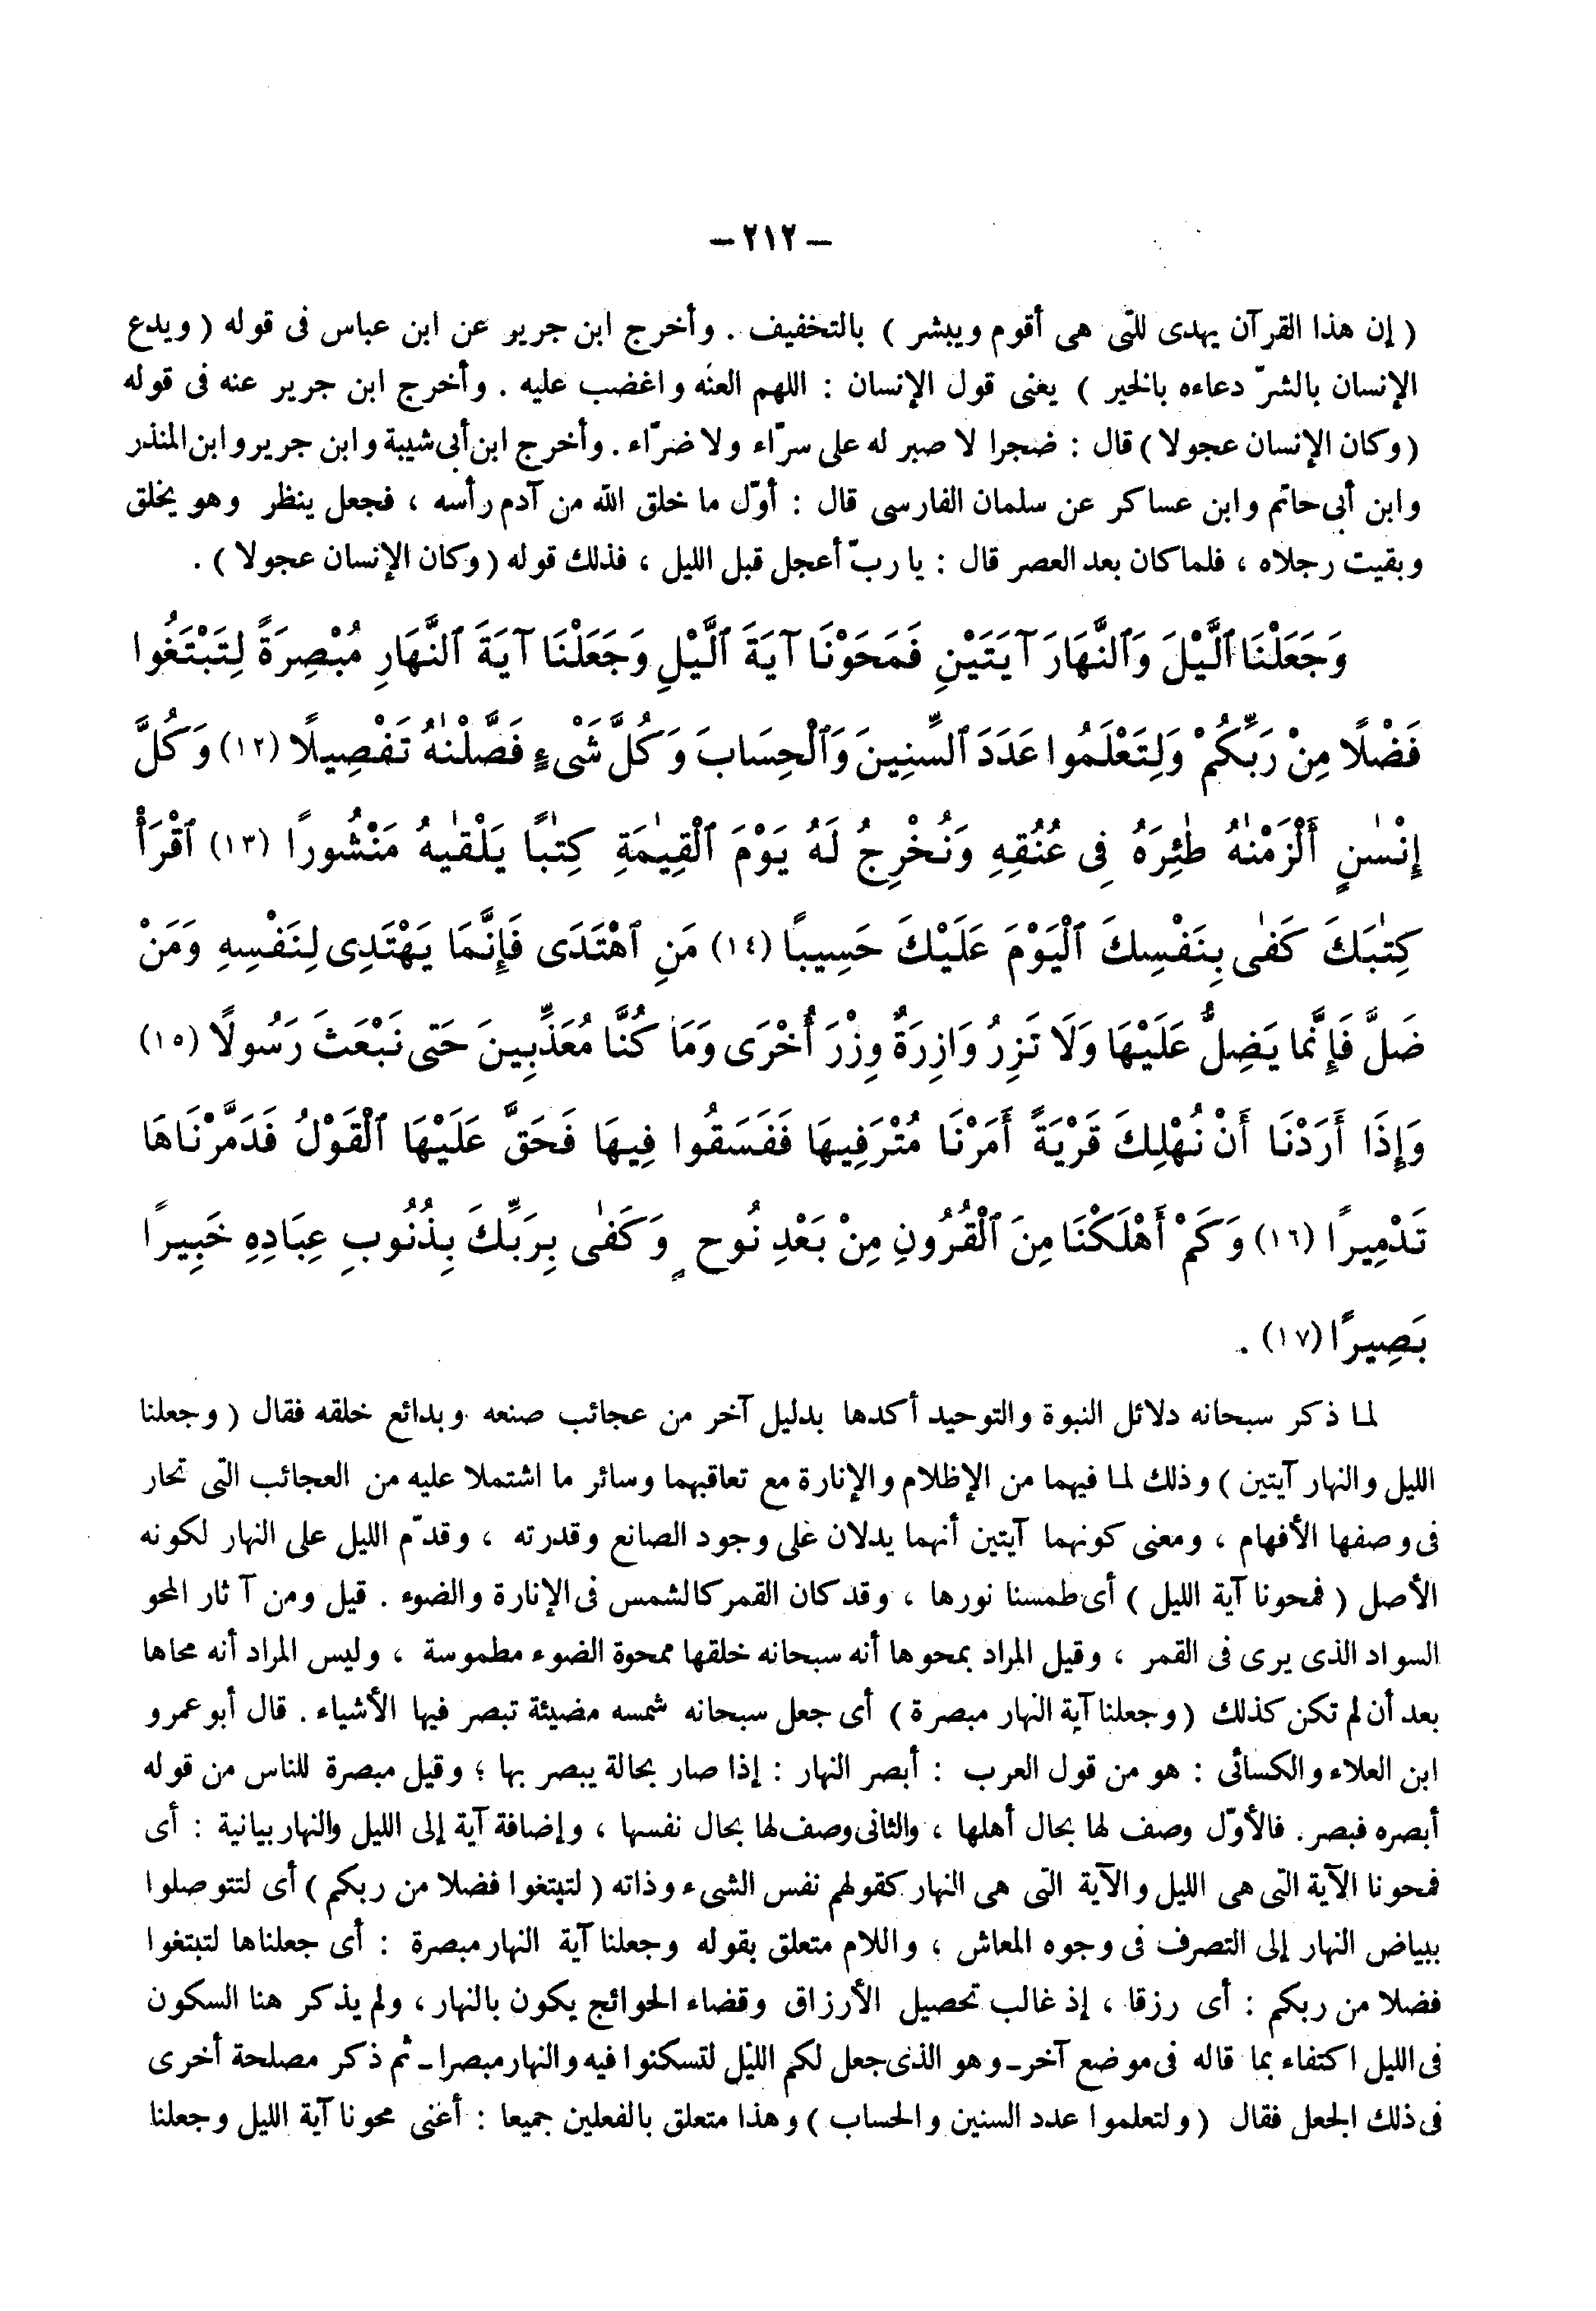 – ٢١٢ –
( إن هذا القرآن يهدى للتى هى أقوم ويبشر ) بالتخفيف . وأخرج ابن جرير عن ابن عباس فى قوله ( ويدع
الإنسان بالشرّ دعاءه بالخير ) يعنى قول الإنسان : اللهم العنه واغضب عليه . وأخرج ابن جرير عنه فى قوله
( وكان الإنسان عجولا ) قال : ضجرا لا صبر له على سرّاء ولا ضرّاء . وأخرج ابن أبى شيبة وابن جرير وابن المنذر
وابن أبى حاتم وابن عساكر عن سلمان الفارسى قال : أوّل ما خلق الله من آدم رأسه ، فجعل ينظر وهو يخلق
وبقيت رجلاه ، فلما كان بعد العصر قال : يا ربّ أعجل قبل الليل ، فذلك قوله ( وكان الإنسان عجولا ) .
وَجَعَلْنَا ٱلَّيْلَ وَٱلنَّهَارَ آيَتَيْنِ فَمَحَوْنَا آيَةَ ٱلَّيْلِ وَجَعَلْنَا آيَةَ ٱلنَّهَارِ مُبْصِرَةً لِتَبْتَغُوا
فَضْلًا مِنْ رَبِّكُمْ وَلِتَعْلَمُوا عَدَدَ ٱلسِّنِينَ وَٱلْحِسَابَ وَكُلَّ شَىْءٍ فَصَّلْنٰهُ تَفْصِيلًا (١٢) وَكُلَّ
إِنْسٰنٍ أَلْزَمْنٰهُ طٰئِرَهُ فِى عُنُقِهِ وَنُخْرِجُ لَهُ يَوْمَ ٱلْقِيٰمَةِ كِتٰبًا يَلْقٰيهُ مَنْشُورًا (١٣) ٱقْرَأْ
كِتٰبَكَ كَفٰى بِنَفْسِكَ ٱلْيَوْمَ عَلَيْكَ حَسِيبًا (١٤) مَنِ ٱهْتَدَى فَإِنَّمَا يَهْتَدِى لِنَفْسِهِ وَمَنْ
ضَلَّ فَإِنَّمَا يَضِلُّ عَلَيْهَا وَلَا تَزِرُ وَازِرَةٌ وِزْرَ أُخْرَى وَمَا كُنَّا مُعَذِّبِينَ حَتى نَبْعَثَ رَسُولًا (١٥)
وَإِذَا أَرَدْنَا أَنْ نُهْلِكَ قَرْيَةً أَمَرْنَا مُتْرَفِيهَا فَفَسَقُوا فِيهَا فَحَقَّ عَلَيْهَا ٱلْقَوْلُ فَدَمَّرْنَاهَا
تَدْمِيرًا (١٦) وَكَمْ أَهْلَكْنَا مِنَ ٱلْقُرُونِ مِنْ بَعْدِ نُوحٍ وَكَفٰى بِرَبِّكَ بِذُنُوبِ عِبَادِهِ خَبِيرًا
بَصِيرًا (١٧) .
لما ذكر سبحانه دلائل النبوة والتوحيد أكدها بدليل آخر من عجائب صنعه وبدائع خلقه فقال ( وجعلنا
الليل والنهار آيتين ) وذلك لما فيهما من الإظلام والإنارة مع تعاقبهما وسائر ما اشتملا عليه من العجائب التى تحار
فى وصفها الأفهام ، ومعنى كونهما آيتين أنهما يدلان على وجود الصانع وقدرته ، وقدّم الليل على النهار لكونه
الأصل ( فمحونا آية الليل ) أى طمسنا نورها ، وقد كان القمر كالشمس فى الإنارة والضوء . قيل ومن آثار المحو
السواد الذى يرى فى القمر ، وقيل المراد بمحوها أنه سبحانه خلقها ممحوة الضوء مطموسة ، وليس المراد أنه محاها
بعد أن لم تكن كذلك ( وجعلنا آية النهار مبصرة ) أى جعل سبحانه شمسه مضيئة تبصر فيها الأشياء . قال أبو عمرو
ابن العلاء والكسائى : هو من قول العرب : أبصر النهار : إذا صار بحالة يبصر بها ؛ وقيل مبصرة للناس من قوله
أبصره فبصر . فالأوّل وصف لها بحال أهلها ، والثانى وصف لها بحال نفسها ، وإضافة آية إلى الليل والنهار بيانية : أى
فمحونا الآية التى هى الليل والآية التى هى النهار كقولهم نفس الشىء وذاته ( لتبتغوا فضلا من ربكم ) أى لتتوصلوا
ببياض النهار إلى التصرف فى وجوه المعاش ، واللام متعلق بقوله وجعلنا آية النهار مبصرة : أى جعلناها لتبتغوا
فضلا من ربكم : أى رزقا ، إذ غالب تحصيل الأرزاق وقضاء الحوائج يكون بالنهار ، ولم يذكر هنا السكون
فى الليل اكتفاء بما قاله فى موضع آخر ـ وهو الذى جعل لكم الليل لتسكنوا فيه والنهار مبصرا ـ ثم ذكر مصلحة أخرى
فى ذلك الجعل فقال ( ولتعلموا عدد السنين والحساب ) وهذا متعلق بالفعلين جميعا : أعنى محونا آية الليل وجعلنا